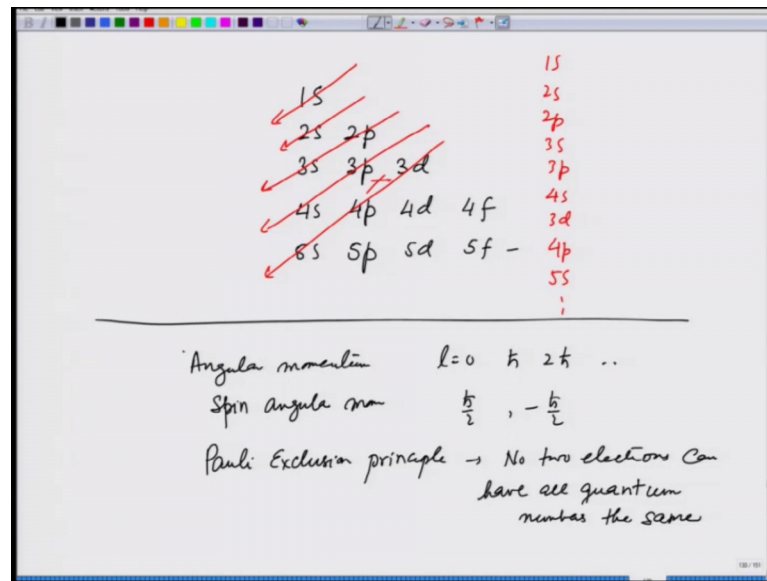 1s
2s 2p
3s 3p 3d
4s 4p 4d 4f
5s 5p 5d 5f -
1s
2s
2p
3s
3p
4s
3d
4p
5s
Angular momentum l=0 ℏ 2ℏ ..
Spin angula mom ℏ/2 , -ℏ/2
Pauli Exclusion principle → No two electrons can
have all quantum
numbers the same